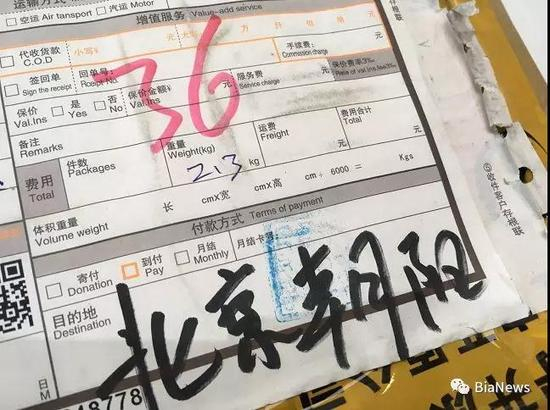 运输方式
空运 Air tansport 汽运 Motor
增值服务 Value-add service
代收货款
C.O.D
小写¥
元
仟
佰
元
手续费:
Commission charge
元
签回单
Sign the receipt
回单号:
Receipt No.
36
服务费
Service charge
元
保价费率3‰
Rate of val.Ins fee3‰
保价
Val.Ins
是
Yes
否
No
保价金额¥
Val.Ins
元
备注
Remarks
费用
Total
件数
Packages
重量
Weight(kg)
213
kg
运费
Freight
元
费用合计
Total
元
长 cm×宽 cm×高 cm÷ 6000 = Kgs
体积重量
Volume weight
付款方式 Terms of payment
寄付
Donation
到付
Pay
月结
Monthly
月结卡号:
目的地
Destination
北京朝阳
日M
48778
⑤收件客户存根联
BiaNews